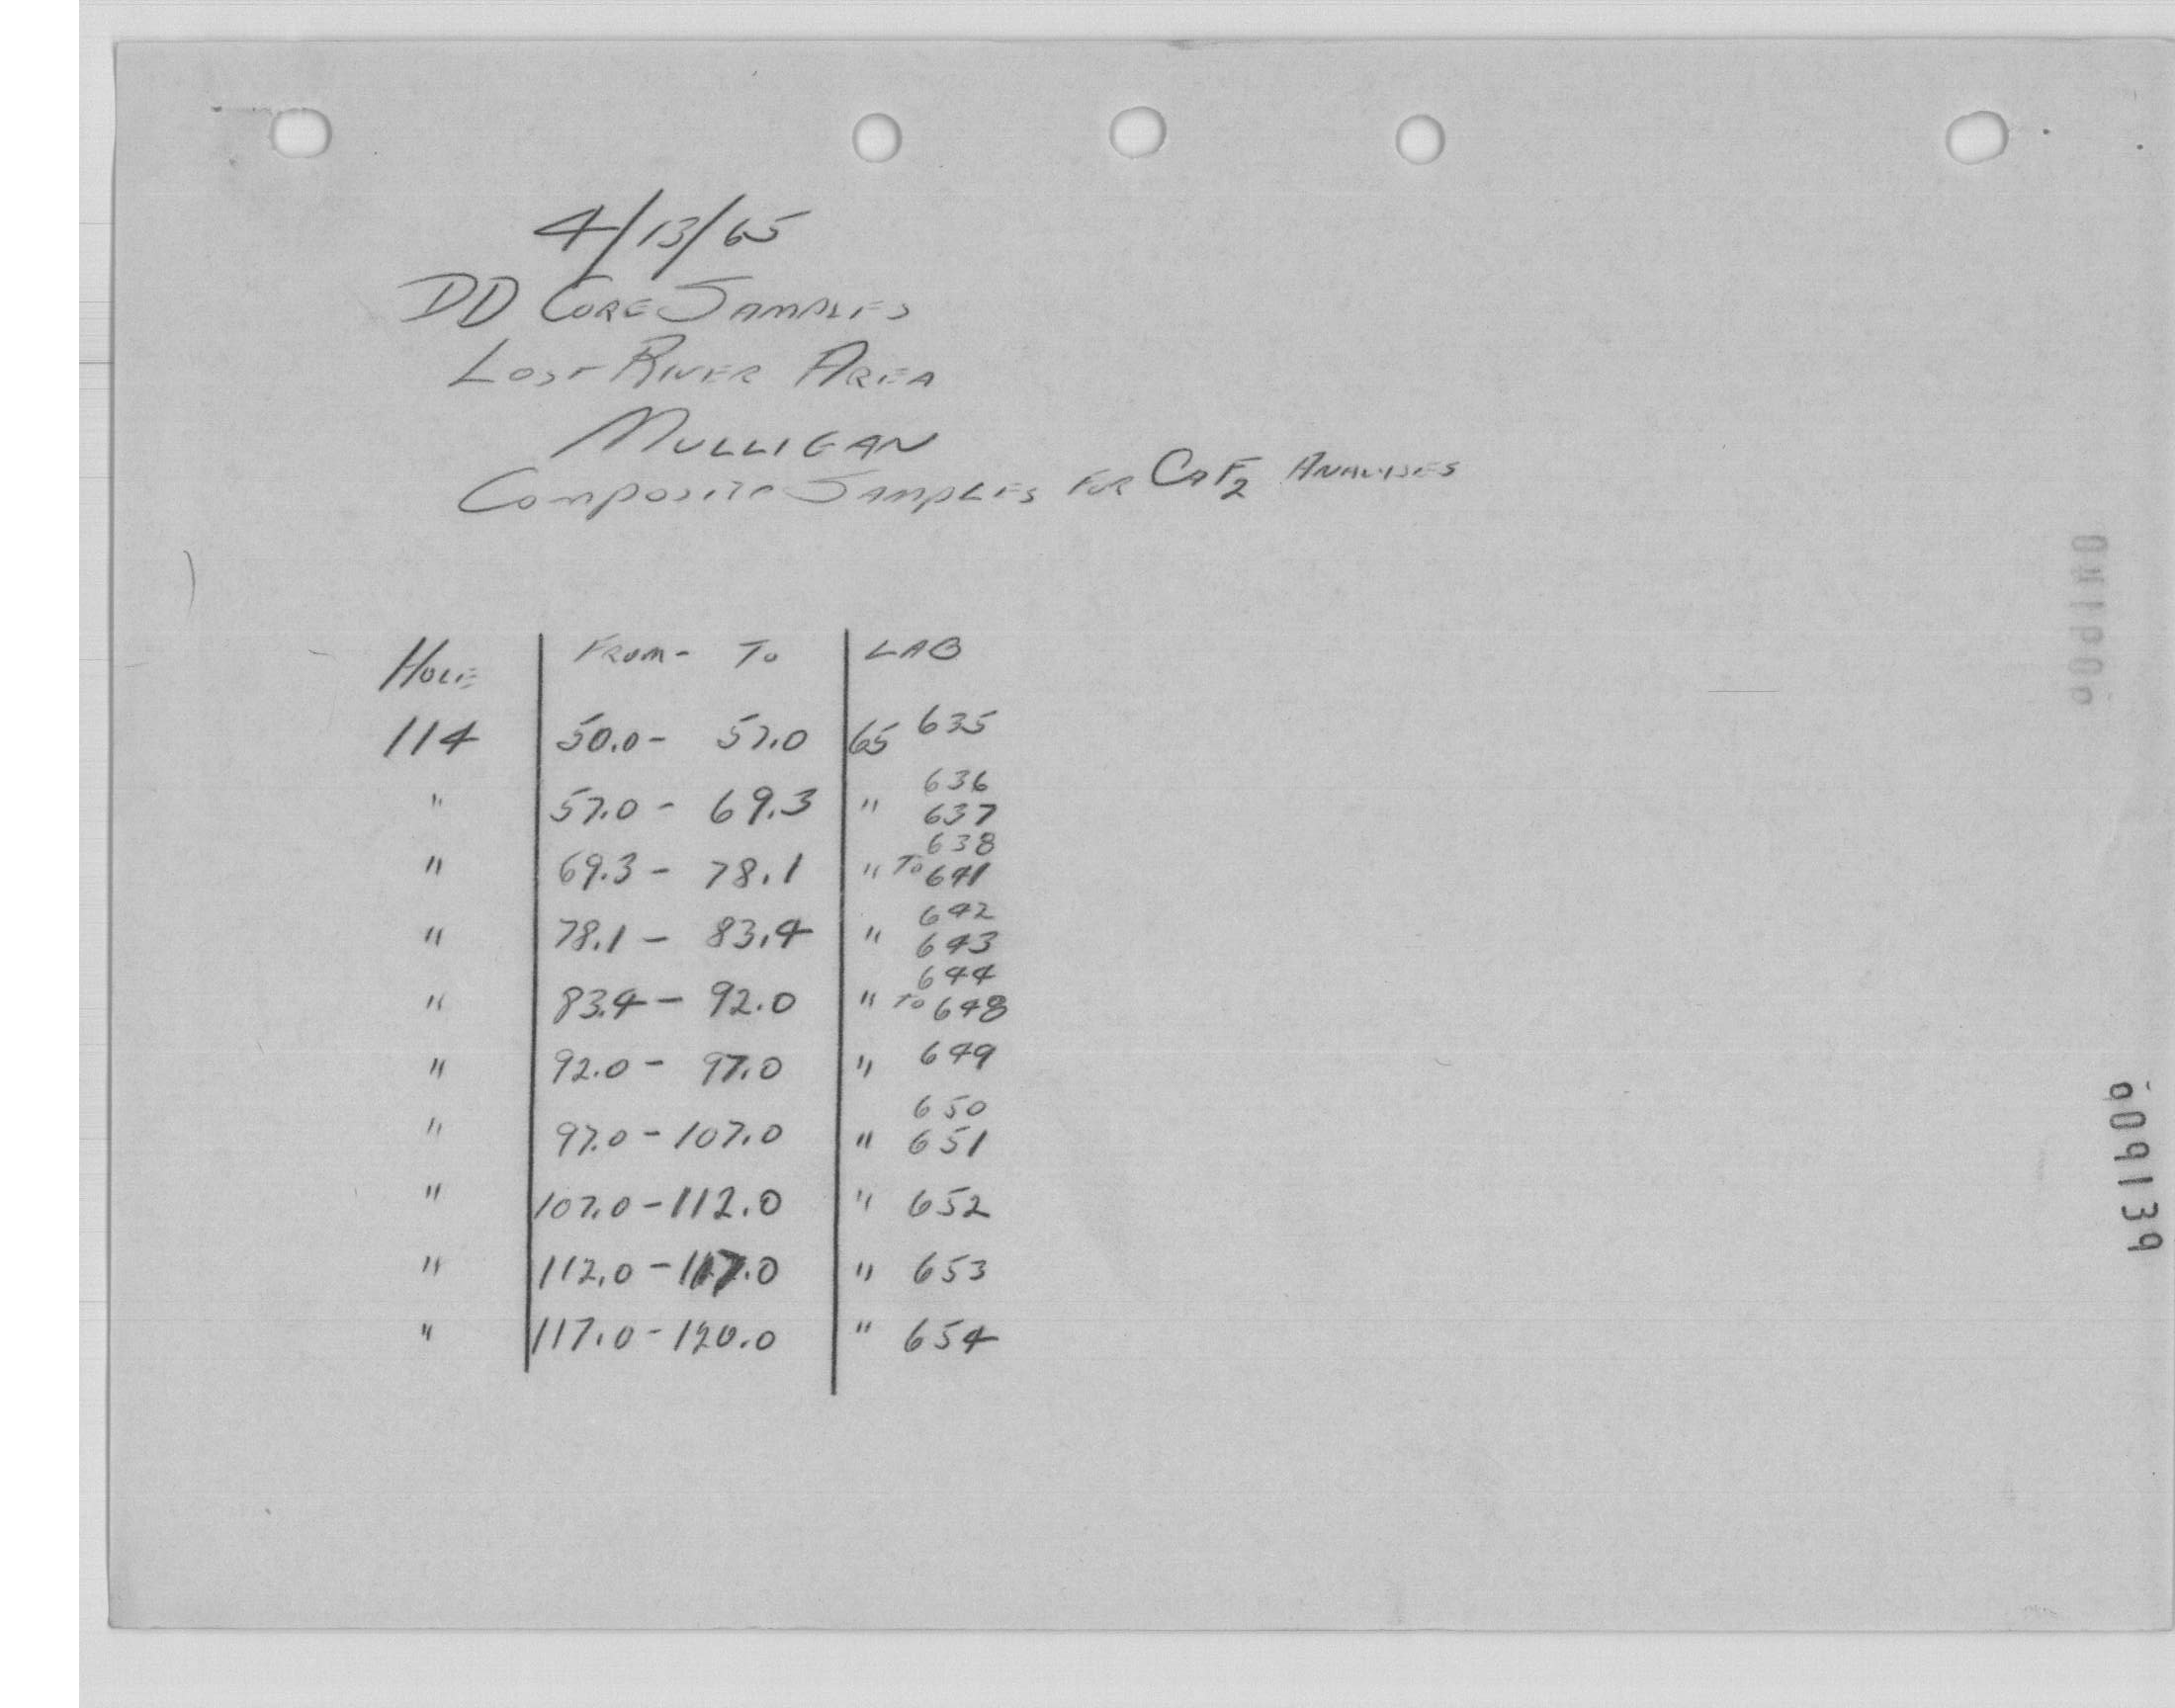 4/13/65
DD CORE SAMPLES
LOST RIVER AREA
MULLIGAN
COMPOSITE SAMPLES FOR CaF2 ANALYSES
HOLE FROM - TO LAB
114 50.0 - 57.0 65 635
" 57.0 - 69.3 " 636 637
" 69.3 - 78.1 " 638 TO 641
" 78.1 - 83.4 " 642 643
" 83.4 - 92.0 " 644 TO 648
" 92.0 - 97.0 " 649
" 97.0 - 107.0 " 650 651
" 107.0 - 112.0 " 652
" 112.0 - 117.0 " 653
" 117.0 - 120.0 " 654